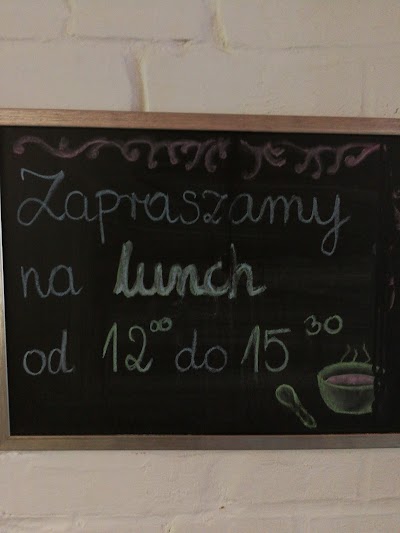 Zapraszamy
na lunch
od 12⁰⁰ do 15³⁰